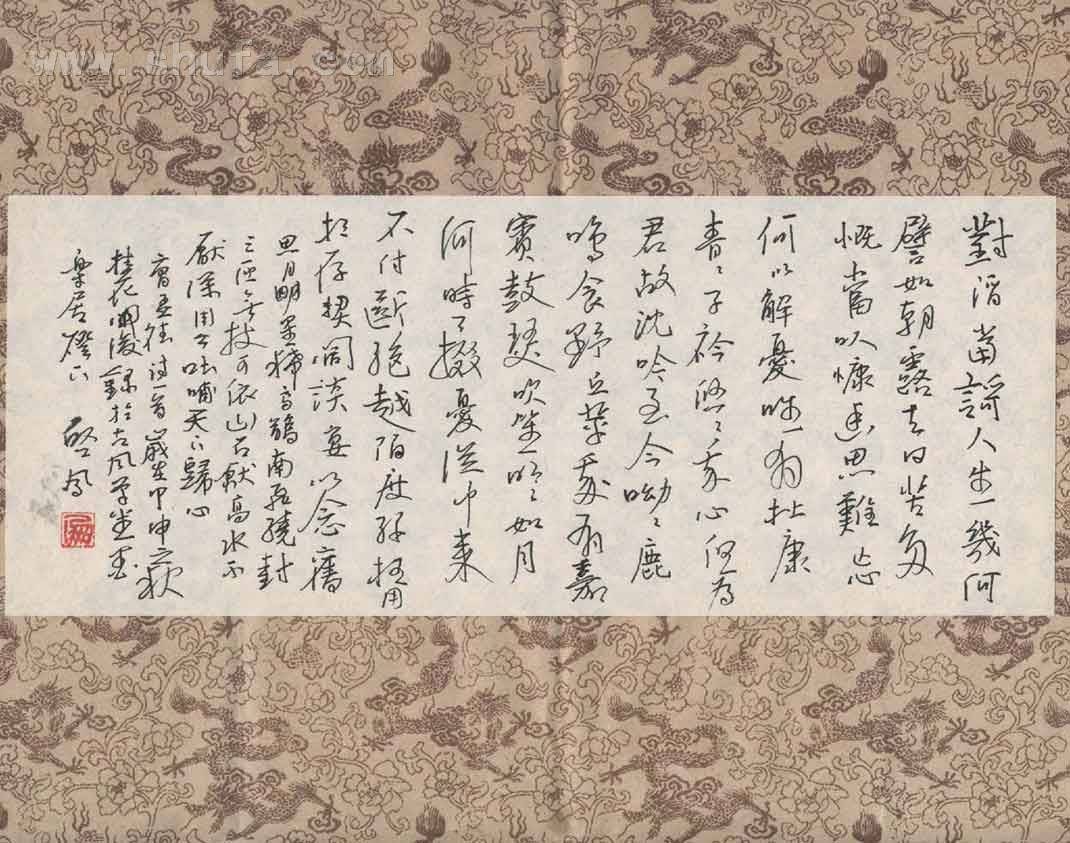 對酒當謌人生幾何
譬如朝露去日苦多
慨當以慷幽思難忘
何以解憂唯有杜康
青〻子衿悠〻我心但為
君故沈吟至今呦〻鹿
鳴食野之苹我有嘉
賓鼓瑟吹笙明〻如月
何時可掇憂從中來
不可斷絕越陌度阡枉用
相存契闊談宴心念舊
恩月明星稀烏鵲南飛繞樹
三匝無枝可依山不厭高水不
厭深周公吐哺天下歸心
曹孟德詩一首歲在甲申之秋
桂花開後錄於古風草堂
樂居燈下
www.shufa.com